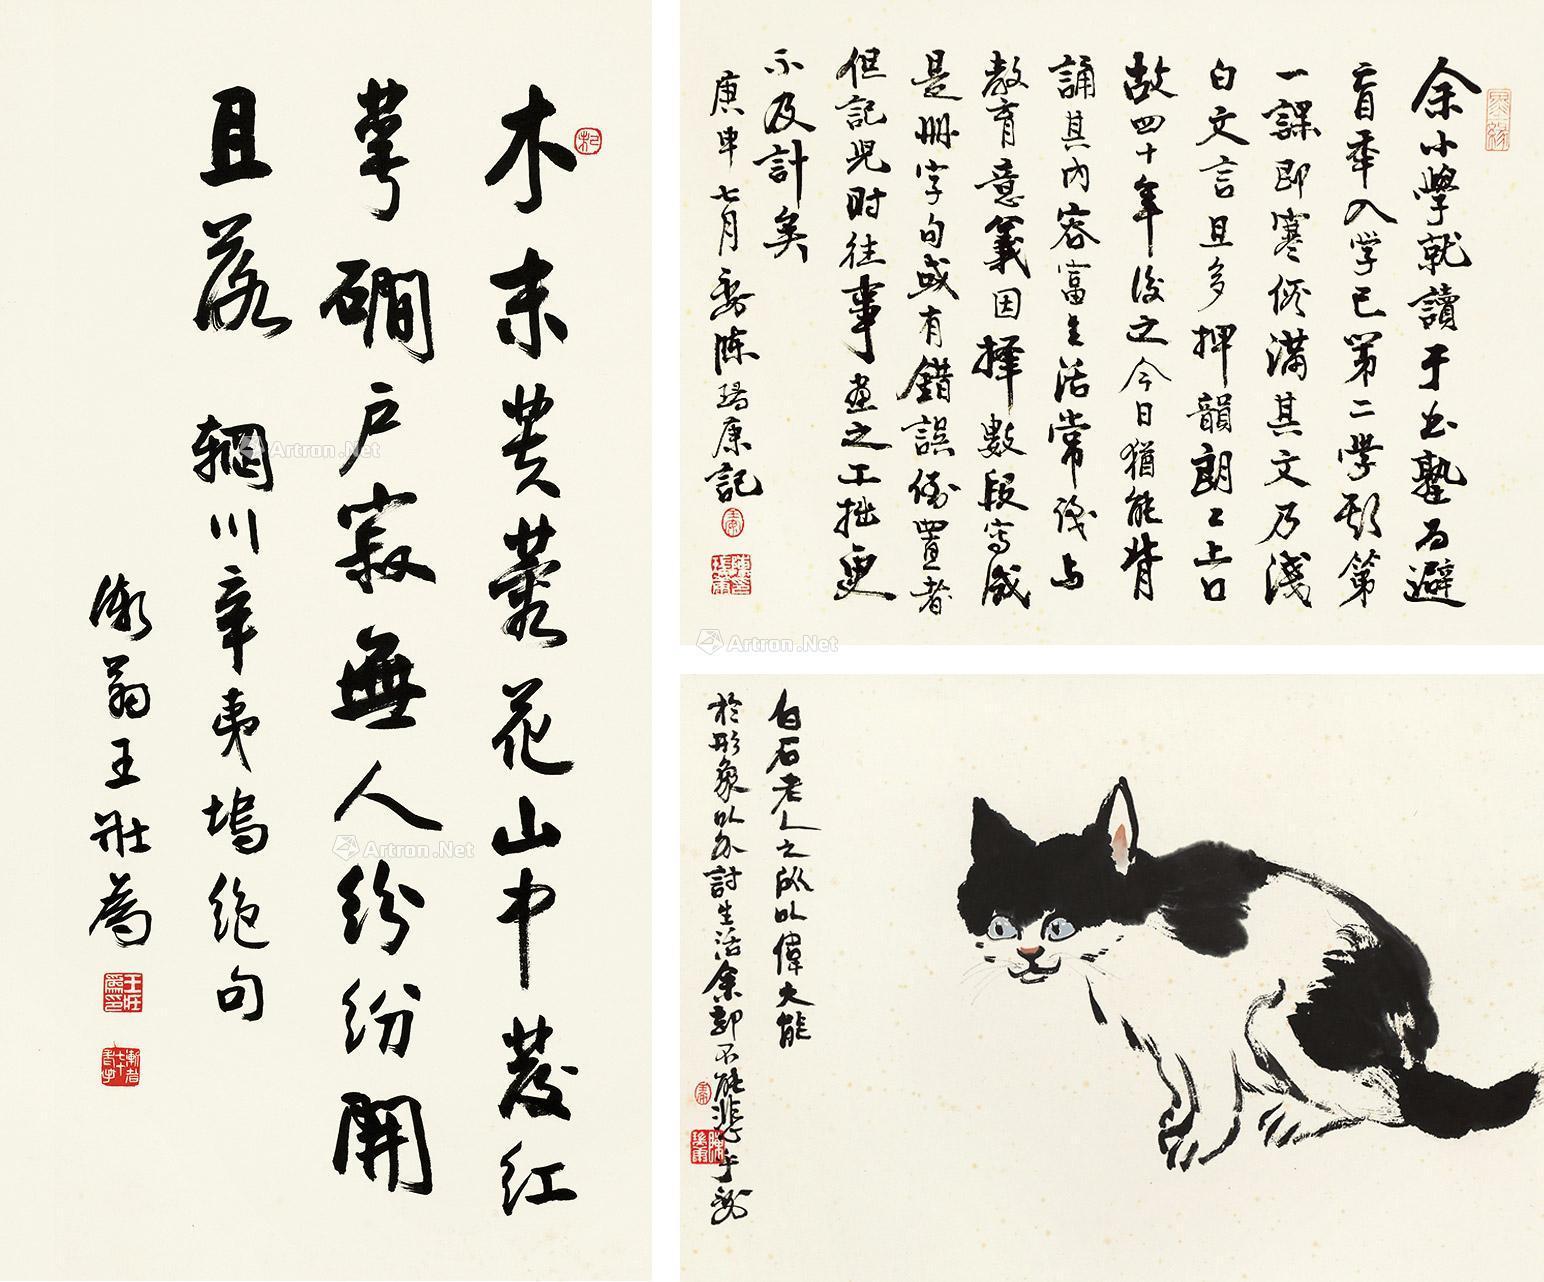 木末芙蓉花山中發紅
萼磵戶寂無人紛紛開
且落 輞川辛夷塢絕句
漸翁王壯為
余小學就讀于私塾為避
盲年入學已第二學期第
一課即寒假滿其文乃淺
白文言且多押韻朗〻上口
故四十年後之今日猶能背
誦其內容富生活常識與
教育意義因擇數段寫成
是冊字句或有錯誤倒置者
但記兒時往事畫之工拙更
不及計矣
庚申七月陳瑞康記
白石老人之所以偉大能
於形象以外討生活余却不能悲乎
Artron.Net
Artron.Net
Artron.Net